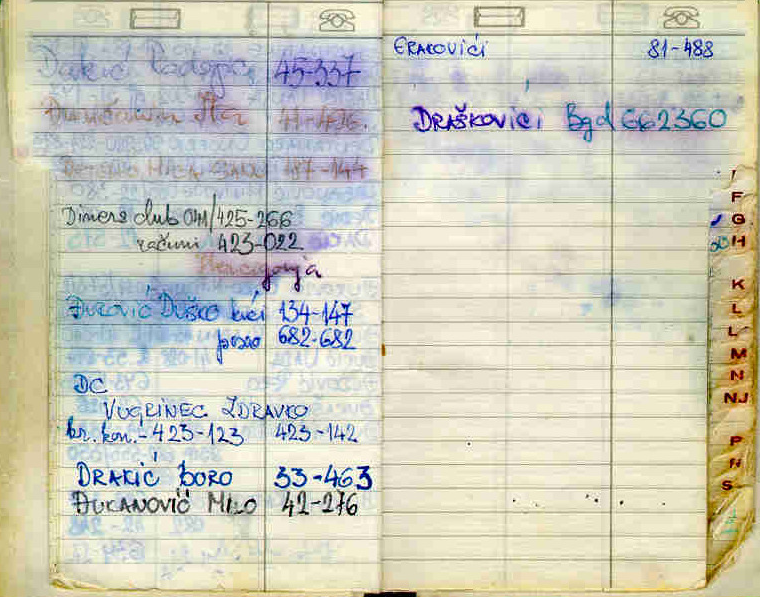 45-337
41-476
187-144
Diners club 041/425-266
računi 423-022
Hercigonja
Đurović Duško kući 134-147
posao 682-682
DC
VUGRINEC ZDRAVKO
br. kon. - 423-123 423-142
DRAKIĆ BORO 33-463
ĐUKANOVIĆ MILO 42-276
ERAKOVIĆI 81-488
DRAŠKOVIĆI Bgd 662360
F
G
H
K
L
L
M
N
NJ
P
S